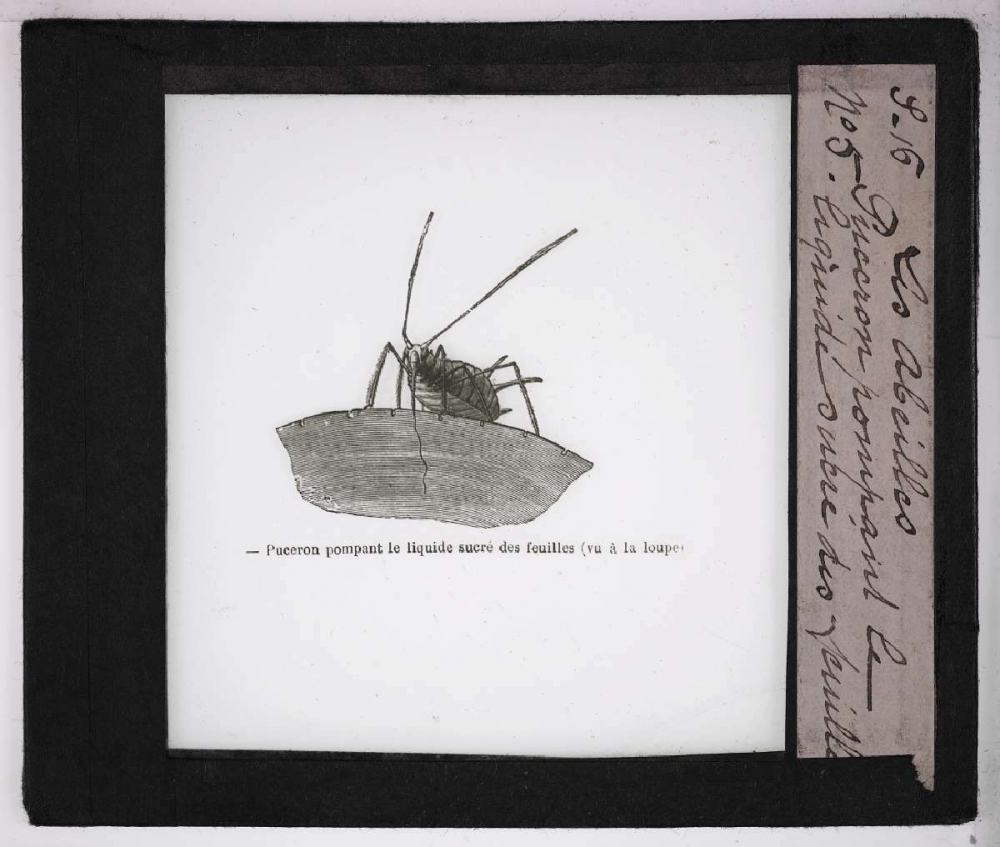 — Puceron pompant le liquide sucré des feuilles (vu à la loupe
S-16 Les abeilles
No 5. Puceron pompant le
liquide sucré des feuille